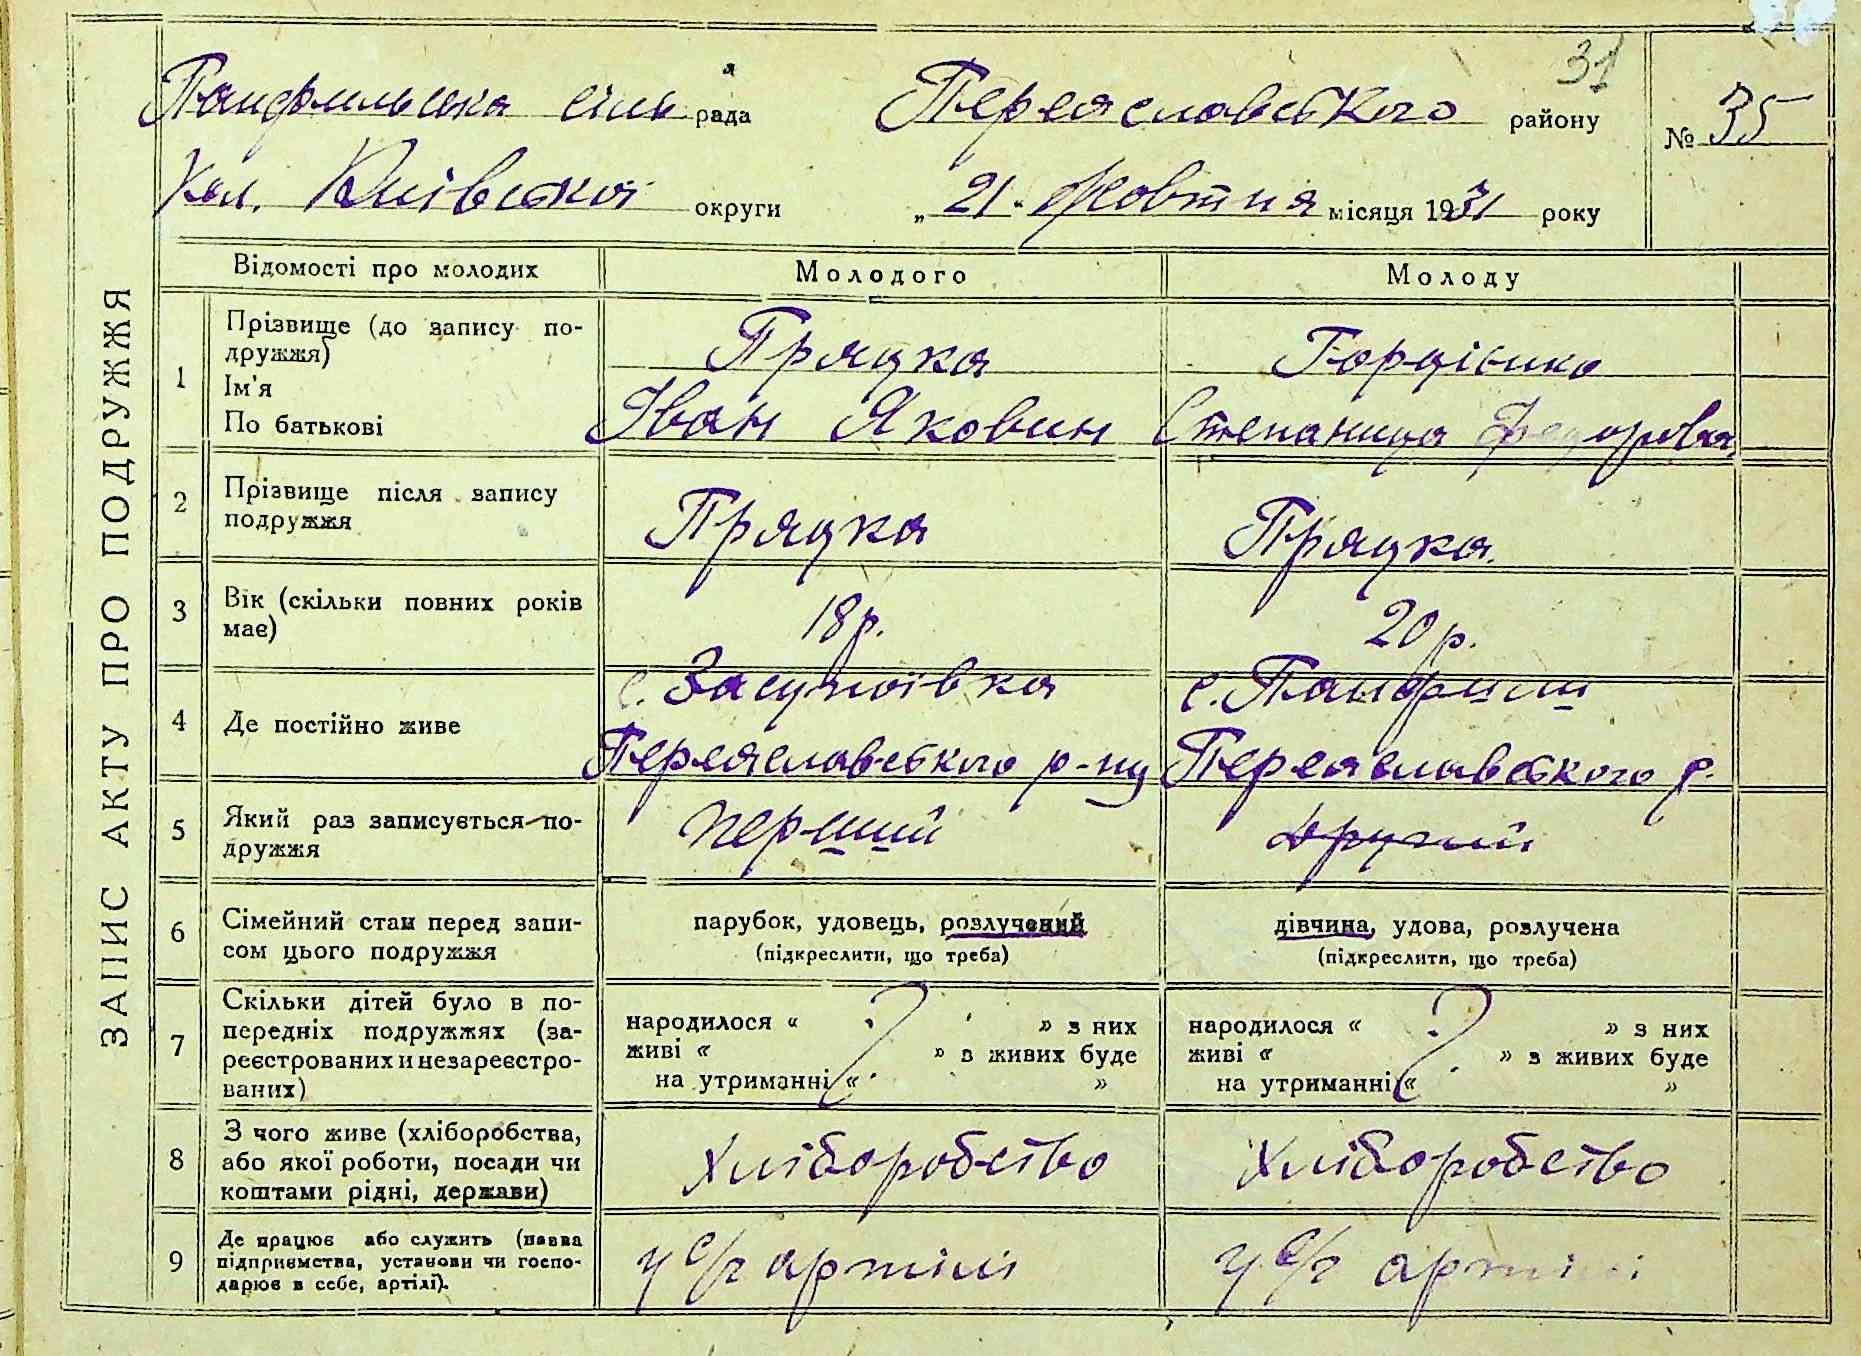 31
Панфильська сільрада Переяславського району № 35
Кол. Київської округи „21" Жовтня місяця 1931 року
ЗАПИС АКТУ ПРО ПОДРУЖЖЯ
Відомості про молодих Молодого Молоду
1 Прізвище (до запису по-
дружжя) Пряцка Гордієнко
Ім'я
По батькові Іван Яковин Степанида Федоровна
2 Прізвище після запису
подружжя Пряцка Пряцка.
3 Вік (скільки повних років
має) 18 р. 20 р.
4 Де постійно живе с. Засупоївка с. Панфили
Переяславського р-ну Переяславського р.
5 Який раз записується по-
дружжя перший другий
6 Сімейний стан перед запи- парубок, удовець, розлучений дівчина, удова, розлучена
сом цього подружжя (підкреслити, що треба) (підкреслити, що треба)
7 Скільки дітей було в по-
передніх подружжях (за- народилося « » з них народилося « » з них
реєстрованих и незареєстро- живі « » з живих буде живі « » з живих буде
ваних) на утриманні « » на утриманні « »
8 З чого живе (хліборобства,
або якої роботи, посади чи Хліборобство Хліборобство
коштами рідні, держави)
9 Де працює або служить (назва
підприємства, установи чи госпо- у с/г артілі у с/г артілі
дарює в себе, артілі).